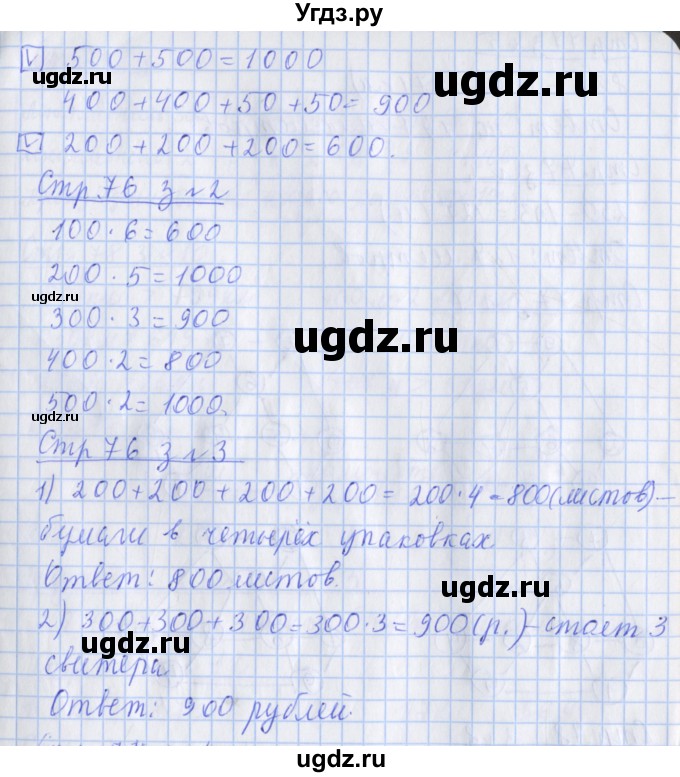 Угдз.ру
V 500+500=1000
ugdz.ru
ugdz.ru
400+400+50+50=900
V 200+200+200=600.
ugdz.ru
Стр.76 з №2
100·6=600
200·5=1000
ugdz.ru
300·3=900
ugdz.ru
400·2=800
500·2=1000.
ugdz.ru
Стр 76 з №3
1) 200+200+200+200=200·4=800(листов)–
бумаги в четырёх упаковках
ugdz.ru
Ответ: 800 листов.
2) 300+300+300=300·3=900(р.)–стоет 3
свитера
Ответ: 900 рублей.
ugdz.ru
ugdz.ru